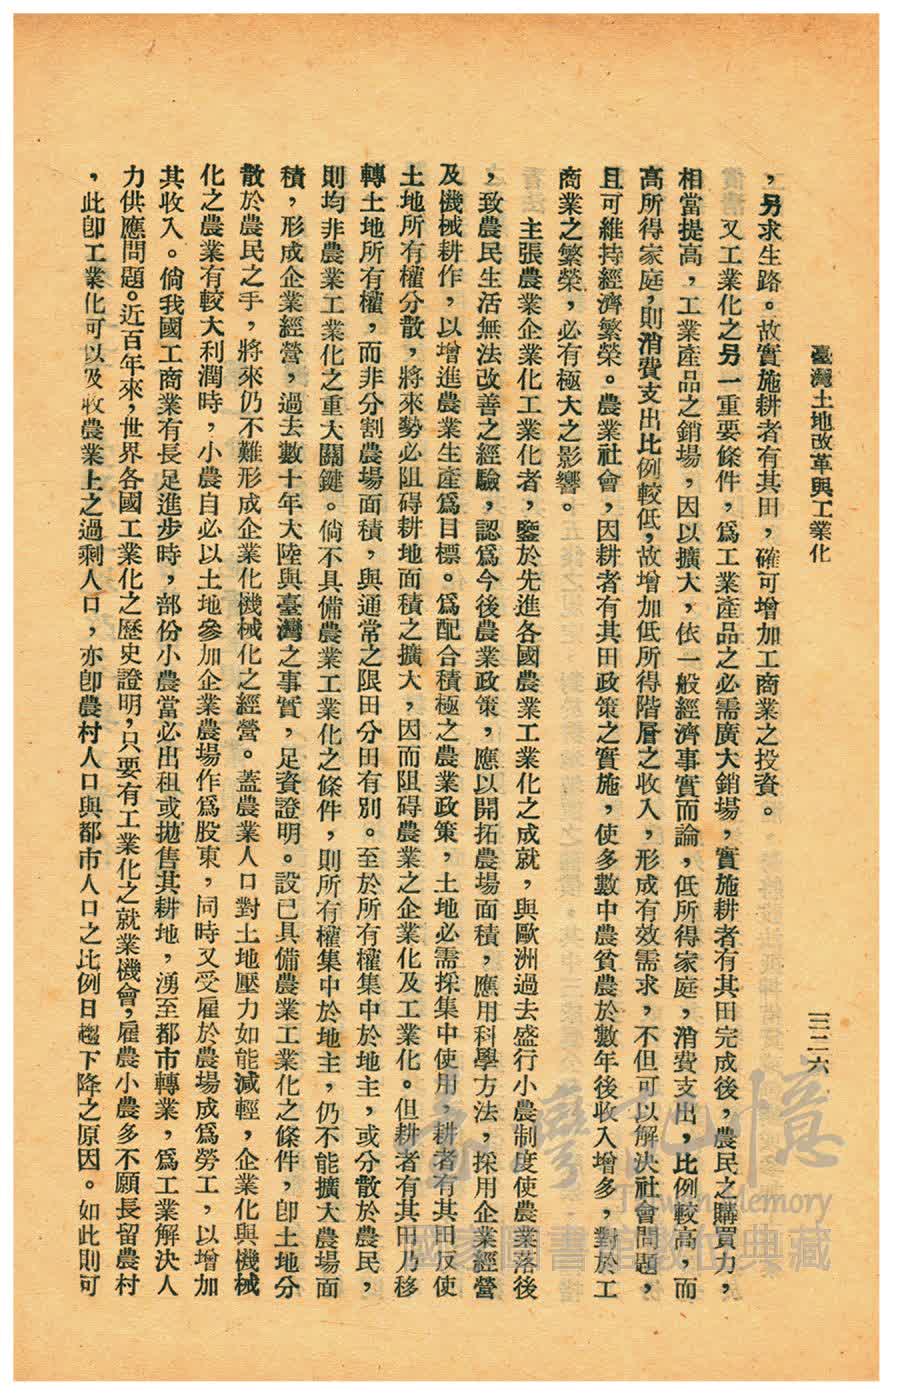 臺灣土地改革與工業化
三二六
，另求生路。故實施耕者有其田，確可增加工商業之投資。
又工業化之另一重要條件，爲工業產品之必需廣大銷場，實施耕者有其田完成後，農民之購買力，
相當提高，工業產品之銷場，因以擴大，依一般經濟事實而論，低所得家庭，消費支出，比例較高，而
高所得家庭，則消費支出比例較低，故增加低所得階層之收入，形成有效需求，不但可以解決社會問題，
且可維持經濟繁榮。農業社會，因耕者有其田政策之實施，使多數中農貧農於數年後收入增多，對於工
商業之繁榮，必有極大之影響。
主張農業企業化工業化者，鑒於先進各國農業工業化之成就，與歐洲過去盛行小農制度使農業落後
，致農民生活無法改善之經驗，認爲今後農業政策，應以開拓農場面積，應用科學方法，採用企業經營
及機械耕作，以增進農業生產爲目標。爲配合積極之農業政策，土地必需採集中使用，耕者有其田反使
土地所有權分散，將來勢必阻碍耕地面積之擴大，因而阻碍農業之企業化及工業化。但耕者有其田乃移
轉土地所有權，而非分割農場面積，與通常之限田分田有別。至於所有權集中於地主，或分散於農民，
則均非農業工業化之重大關鍵。倘不具備農業工業化之條件，則所有權集中於地主，仍不能擴大農場面
積，形成企業經營，過去數十年大陸與臺灣之事實，足資證明。設已具備農業工業化之條件，卽土地分
散於農民之手，將來仍不難形成企業化機械化之經營。蓋農業人口對土地壓力如能減輕，企業化與機械
化之農業有較大利潤時，小農自必以土地參加企業農場作爲股東，同時又受雇於農場成爲勞工，以增加
其收入。倘我國工商業有長足進步時，部份小農當必出租或拋售其耕地，湧至都市轉業，爲工業解決人
力供應問題。近百年來，世界各國工業化之歷史證明，只要有工業化之就業機會，雇農小農多不願長留農村
，此卽工業化可以吸收農業上之過剩人口，亦卽農村人口與都市人口之比例日趨下降之原因。如此則可
臺灣記憶
Taiwan Memory
國家圖書館數位典藏